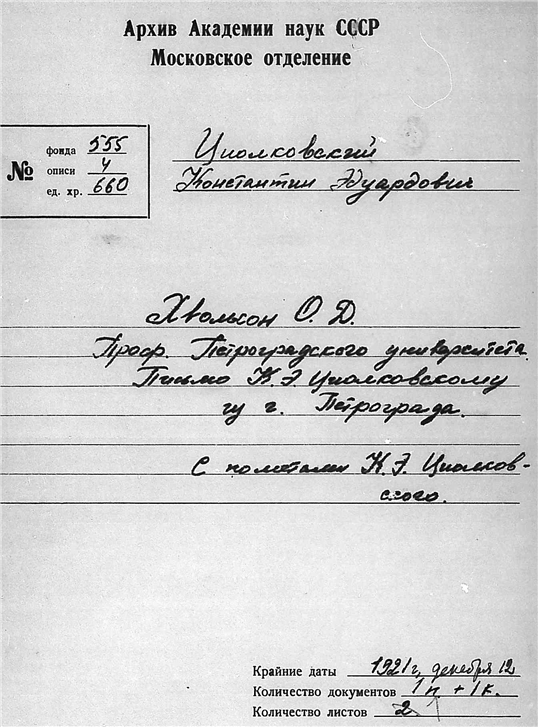 Архив Академии наук СССР
Московское отделение
№
фонда 555
описи 4
ед. хр. 660
Циолковский
Константин Эдуардович
Хвольсон О. Д.
Проф. Петроградского университета.
Письмо К. Э. Циолковскому
из г. Петрограда.
С пометами К. Э. Циолков-
ского.
Крайние даты 1921 г, декабря 12
Количество документов 1п + 1к.
Количество листов 2